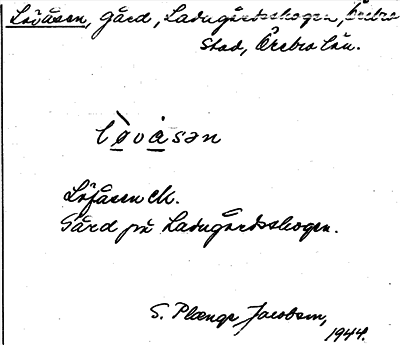 Lövåsen, Gård, Ladugårdsskogen, Örebro
Stad, Örebro län.
lòvȧsən
Löfåsen ck.
Gård på Ladugårdsskogen.
S. Plænge Jacobson,
1944.